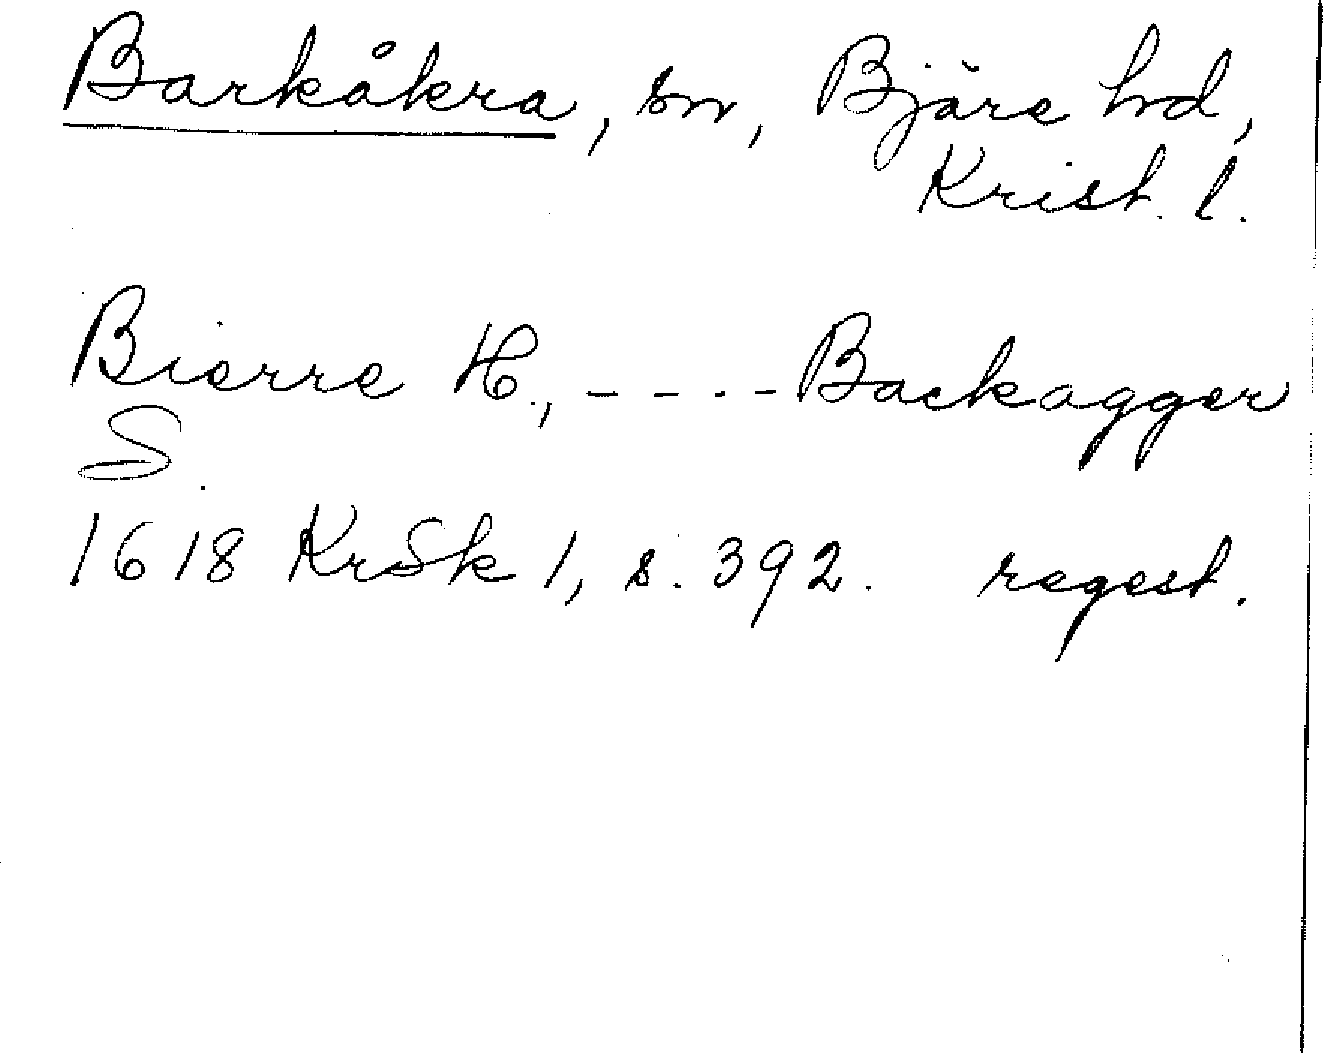 Barkåkra, sn, Bjäre hd,
Krist. l.
Bierre H., - - - - Backagger
S.
1618 KrSk 1, s. 392. regest.